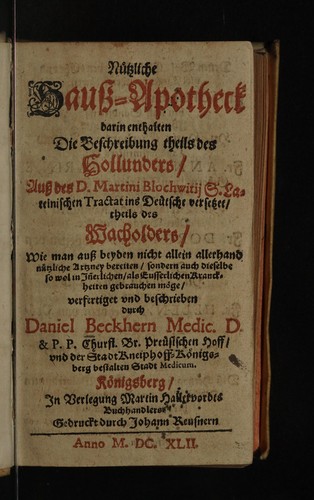 Nützliche
Hauß-Apotheck
darin enthalten
Die Beschreibung theils des
Hollunders/
Auß des D. Martini Blochwitij S. La-
teinischen Tractat ins Deütsche versetzet/
theils des
Wacholders/
Wie man auß beyden nicht allein allerhand
nützliche Artzney bereiten / sondern auch dieselbe
so wol in Jñerlichen/als Eusserlichen Kranck-
heiten gebrauchen möge/
verfertiget vnd beschrieben
durch
Daniel Beckhern Medic. D.
& P. P. Churfl. Br. Preüsischen Hoff/
vnd der Stadt Kneiphoff-Königs-
berg bestalten Stadt Medicum.
Königsberg/
In Verlegung Martin Hallervordts
Buchhandlers
Gedruckt durch Johann Reusnern
Anno M. DC. XLII.